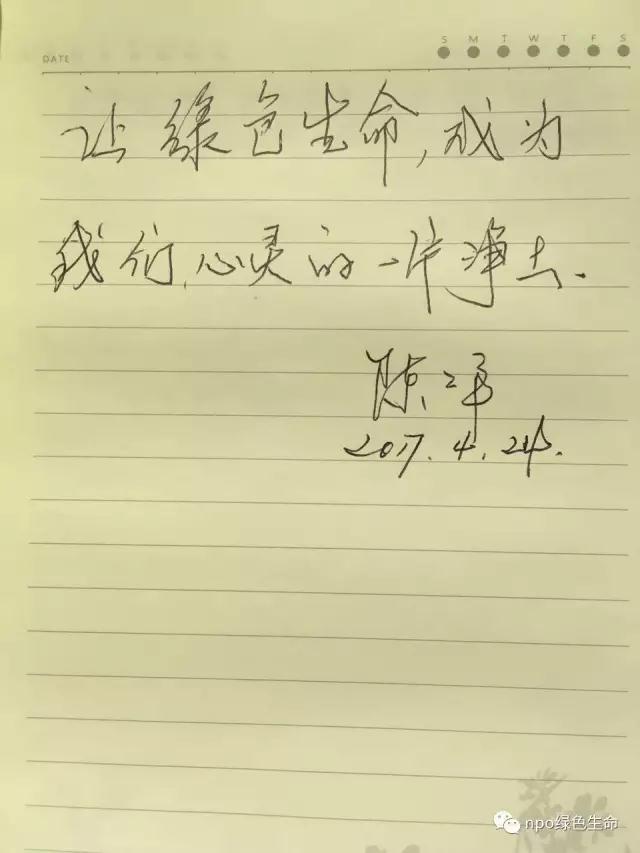 DATE
S M T W T F S
让绿色生命,成为
我们心灵的一片净土.
陈
2017.4.24.
npo绿色生命